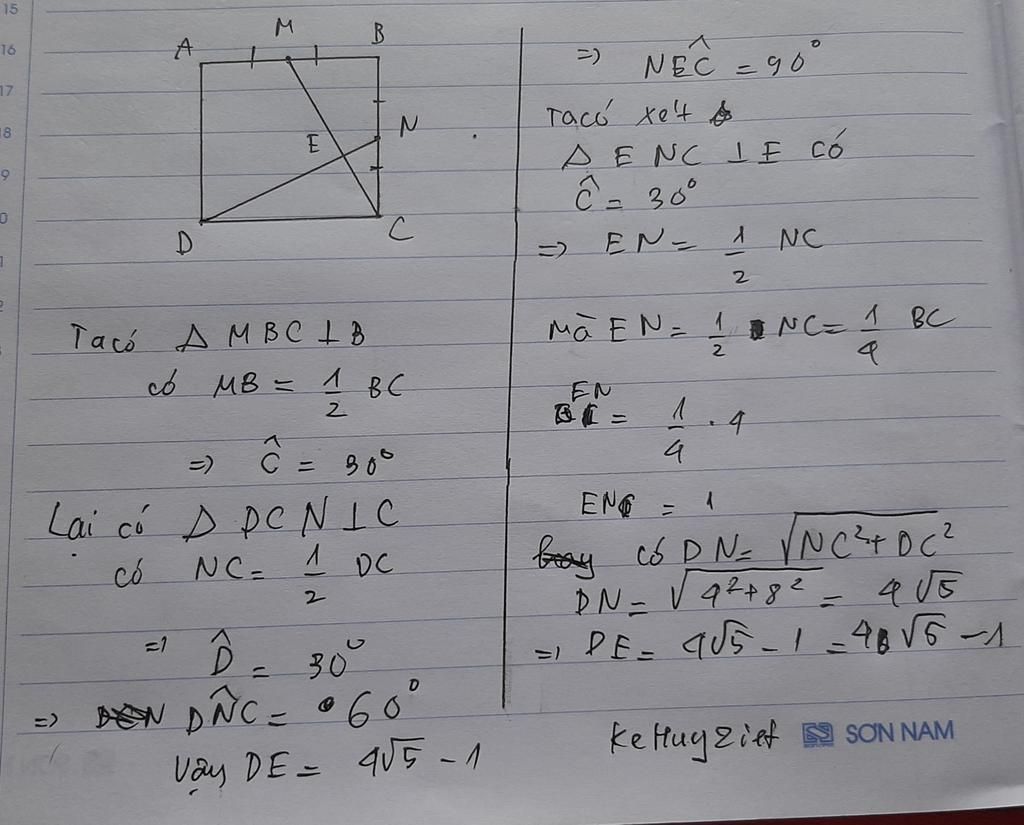 15
16
17
18
9
0
1
2
A M B
N
E
D C
Ta có Δ MBC ⊥ B
có MB = 1/2 BC
=> Ĉ = 30°
Lại có Δ DCN ⊥ C
có NC = 1/2 DC
=> D̂ = 30°
=> DN̂C = 60°
Vậy DE = 4√5 - 1
=> NÊC = 90°
Ta có xét
Δ ENC ⊥ E có
Ĉ = 30°
=> EN = 1/2 NC
Mà EN = 1/2 NC = 1/4 BC
EN = 1/4 . 4
EN = 1
có DN = √NC²+DC²
DN = √4²+8² = 4√5
=> DE = 4√5 - 1 = 4√5 - 1
KeHuyZief
SƠN NAM